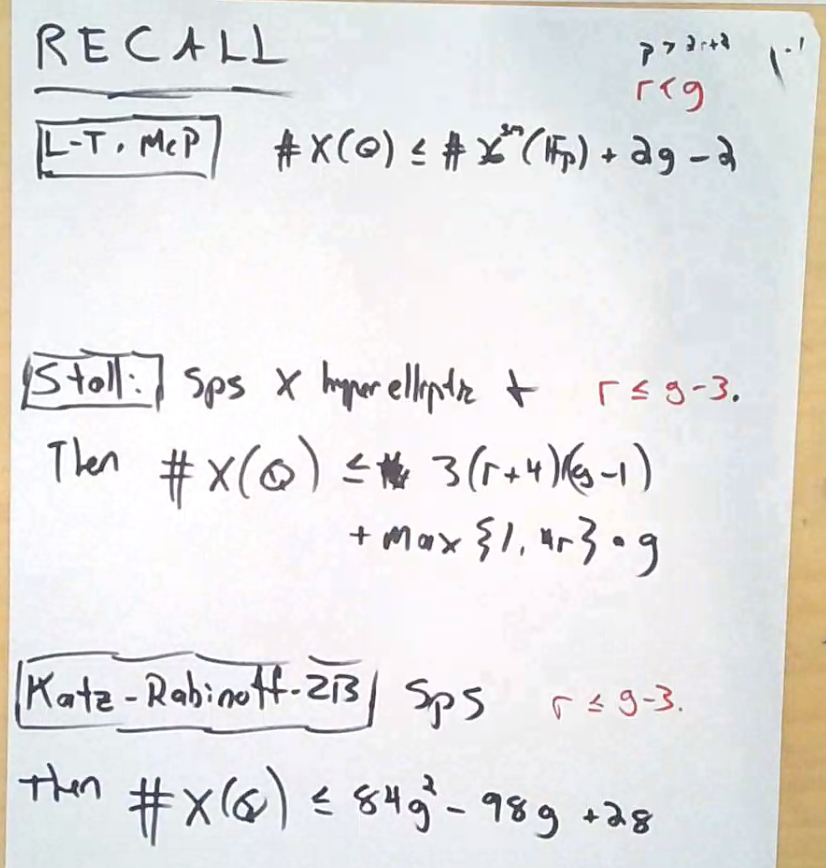 RECALL
p > 2r+2
r < g
L-T, McP #X(Q) ≤ #X^sm(F_p) + 2g - 2
Stoll: Sps X hyperelliptic + r ≤ g-3.
Then #X(Q) ≤ 3(r+4)(g-1)
+ max {1, 4r} • g
Katz-Rabinoff-ZB Sps r ≤ g-3.
Then #X(Q) ≤ 84g² - 98g + 28